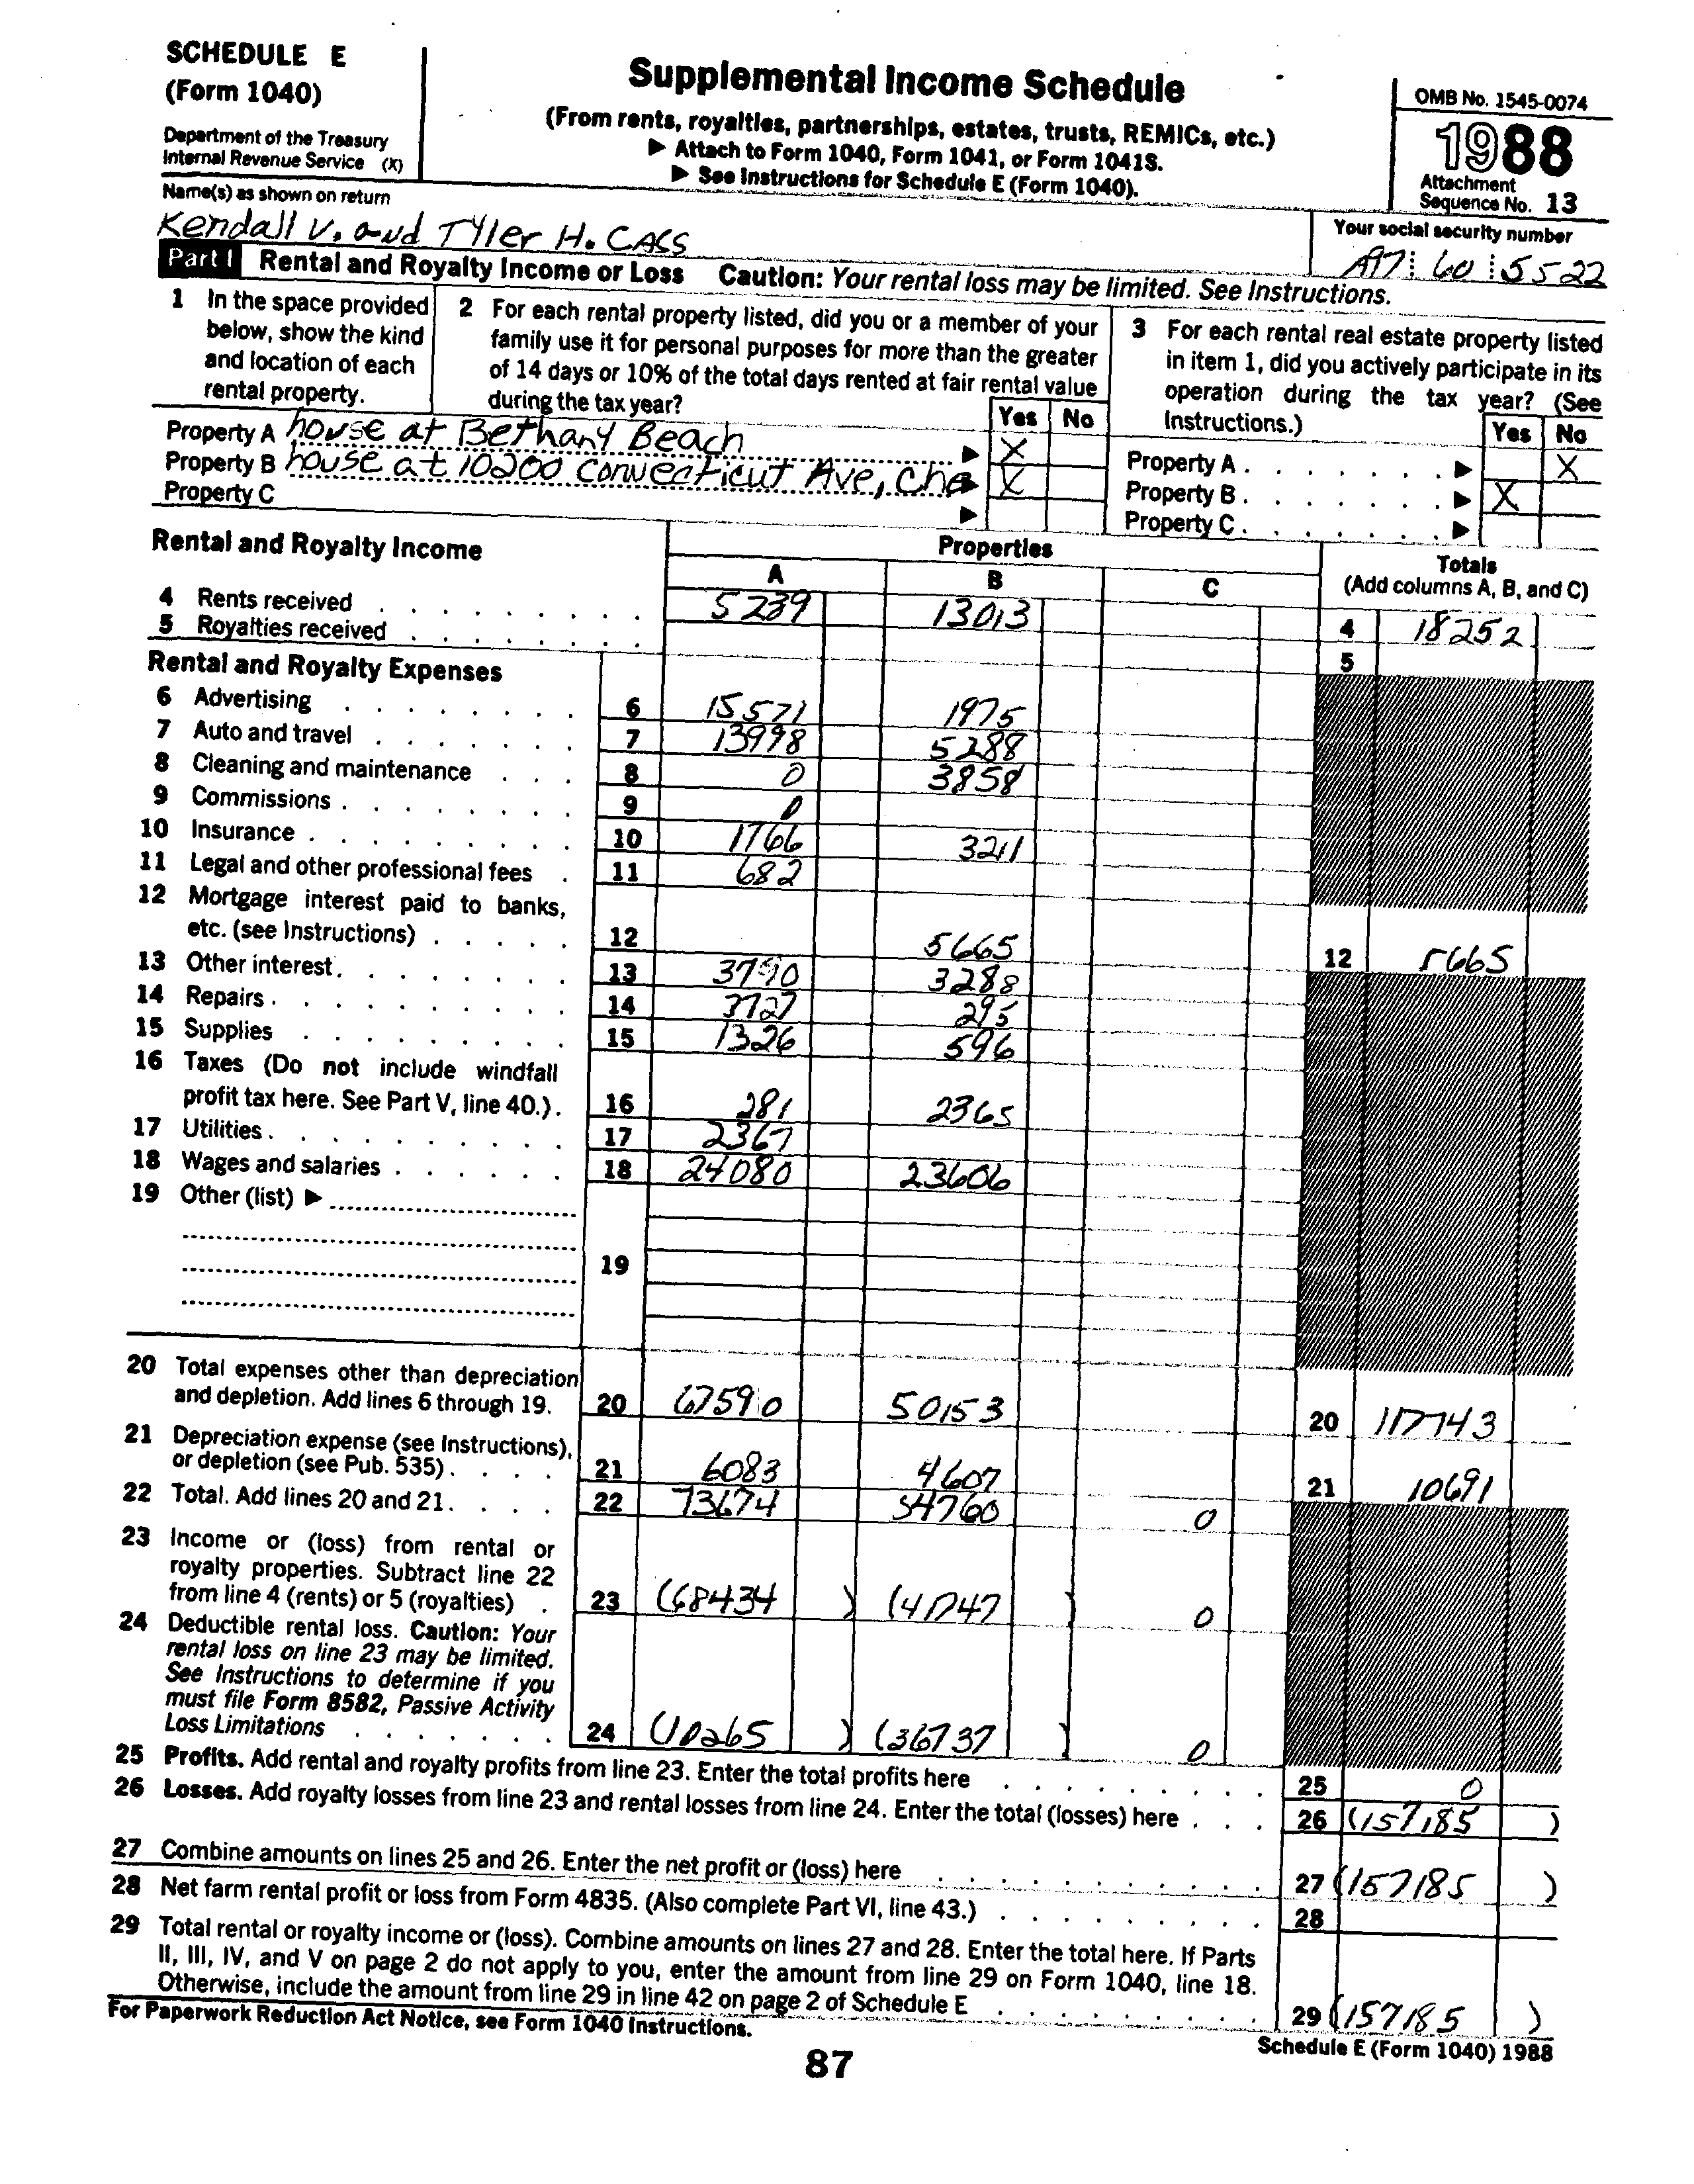 SCHEDULE E
(Form 1040)
Department of the Treasury
Internal Revenue Service (X)
Supplemental Income Schedule
(From rents, royalties, partnerships, estates, trusts, REMICs, etc.)
▶ Attach to Form 1040, Form 1041, or Form 1041S.
▶ See Instructions for Schedule E (Form 1040).
OMB No. 1545-0074
1988
Attachment
Sequence No. 13
Name(s) as shown on return
Kendall V. and Tyler H. Cass
Your social security number
60 5522
Part I Rental and Royalty Income or Loss Caution: Your rental loss may be limited. See Instructions.
1 In the space provided below, show the kind and location of each rental property.
2 For each rental property listed, did you or a member of your family use it for personal purposes for more than the greater of 14 days or 10% of the total days rented at fair rental value during the tax year?
Yes No
3 For each rental real estate property listed in item 1, did you actively participate in its operation during the tax year? (See Instructions.)
Yes No
Property A house at Bethany Beach ▶ X
Property B house at 10200 Connecticut Ave, Che ▶ X
Property C ▶
Property A . . . . . . . ▶ X
Property B . . . . . . . ▶ X
Property C . . . . . . . ▶
Rental and Royalty Income
Properties
A B C
Totals
(Add columns A, B, and C)
4 Rents received 5239 13013 4 18252
5 Royalties received 5
Rental and Royalty Expenses
6 Advertising 6 15571 1975
7 Auto and travel 7 13998 5288
8 Cleaning and maintenance 8 0 3858
9 Commissions 9 0
10 Insurance 10 1766 3211
11 Legal and other professional fees 11 682
12 Mortgage interest paid to banks,
etc. (see Instructions) 12 5665 12 5665
13 Other interest 13 3790 3288
14 Repairs 14 3727 295
15 Supplies 15 1326 596
16 Taxes (Do not include windfall
profit tax here. See Part V, line 40.) 16 281 2365
17 Utilities 17 2367
18 Wages and salaries 18 24080 23606
19 Other (list) ▶
19
20 Total expenses other than depreciation
and depletion. Add lines 6 through 19. 20 67590 50153 20 117743
21 Depreciation expense (see Instructions),
or depletion (see Pub. 535) 21 6083 4607 21 10691
22 Total. Add lines 20 and 21 22 73674 54760 0
23 Income or (loss) from rental or
royalty properties. Subtract line 22
from line 4 (rents) or 5 (royalties) 23 (68434 ) (41747 ) 0
24 Deductible rental loss. Caution: Your
rental loss on line 23 may be limited.
See Instructions to determine if you
must file Form 8582, Passive Activity
Loss Limitations 24 (10265 ) (36737 ) 0
25 Profits. Add rental and royalty profits from line 23. Enter the total profits here 25 0
26 Losses. Add royalty losses from line 23 and rental losses from line 24. Enter the total (losses) here 26 (157185 )
27 Combine amounts on lines 25 and 26. Enter the net profit or (loss) here 27 (157185 )
28 Net farm rental profit or loss from Form 4835. (Also complete Part VI, line 43.) 28
29 Total rental or royalty income or (loss). Combine amounts on lines 27 and 28. Enter the total here. If Parts
II, III, IV, and V on page 2 do not apply to you, enter the amount from line 29 on Form 1040, line 18.
Otherwise, include the amount from line 29 in line 42 on page 2 of Schedule E 29 (157185 )
For Paperwork Reduction Act Notice, see Form 1040 Instructions.
Schedule E (Form 1040) 1988
87